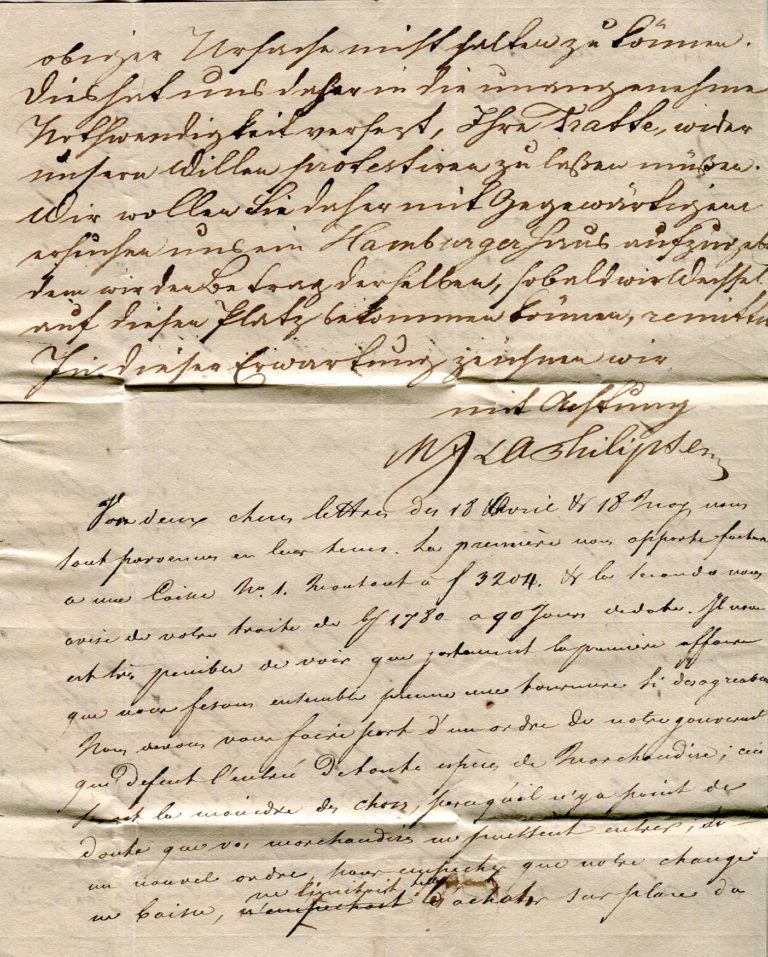 obiger Ursache nicht halten zu können.
Dies hat uns daher in die unangenehme
Nothwendigkeit versezt, Ihre Tratte, wider
unsern Willen protestiren zu laßen müßen.
Wir wollen Sie daher mit Gegenwärtigem
ersuchen uns ein Hamburger Haus aufzugeb
dem wir den Betrag derselben, sobald wir Wechsel
auf diesen Platz bekommen können, remitti
In dieser Erwartung zeichnen wir
mit Achtung
Philipsen
deux cheres lettres des 18 Avril & 18 May nous
sont parvenues en leur tems. La première nous apporte facture
a une Caisse No. 1. Montant à f 3204. & la seconde nous
avise de votre traite de 1780 a 90 Jours de date. Il nous
est très penible de voir que justement la première affaire
que nous fesons ensemble prenne une tournure si desagreab
Nous devons vous faire part d'un ordre de notre gouvernt
que defent l'entrée de toute espèce de Marchandise; ceci
est la moindre des choses, parcequ'il n'y a point de
doute que vos marchandises ne puissent entrer;
un nouvel ordre pour empecher que notre change
ne baisse, n'empechoit d'acheter sur place du